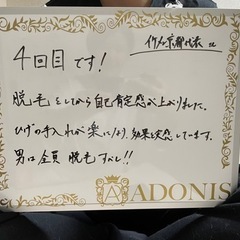 4回目です!
脱毛をしてから自己肯定感が上がりました。
ひげの手入れが楽になり、効果を実感しています。
男は全員脱毛すべし!!
ADONIS